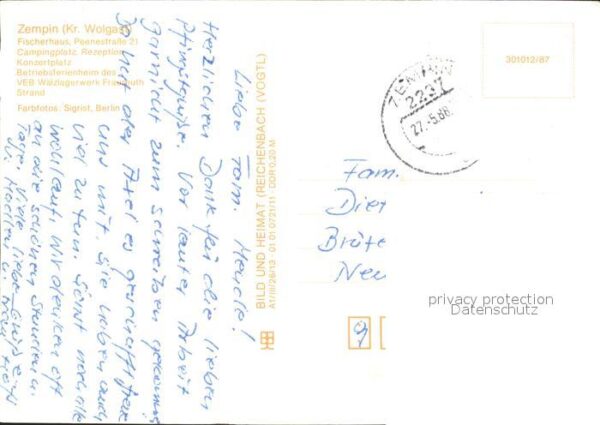 Zempin (Kr. Wolgast)
Fischerhaus, Peenestraße 21
Campingplatz, Rezeption
Konzertplatz
Betriebsferienheim des
VEB Wälzlagerwerk Fraureuth
Strand
Farbfotos: Sigrist, Berlin
BILD UND HEIMAT (REICHENBACH (VOGTL)
A1/III/26/13 · 01 01 0721/11 · DDR 0,20 M
301012/87
ZEMPIN
2237
27.-5.88
Liebe Fam.
Herzlichen Dank für die lieben
Pfingstgrüße. Vor lauter Arbeit
garnicht zum schreiben gekommen
So hat der Axel es geschafft
uns mit Sie haben auch
viel zu tun. Sonst noch alles
wohlauf. Wir denken oft
an die schönen Stunden u.
Tage. Viele liebe Grüße
Fam.
Diet
Brüte
Neu
privacy protection
Datenschutz